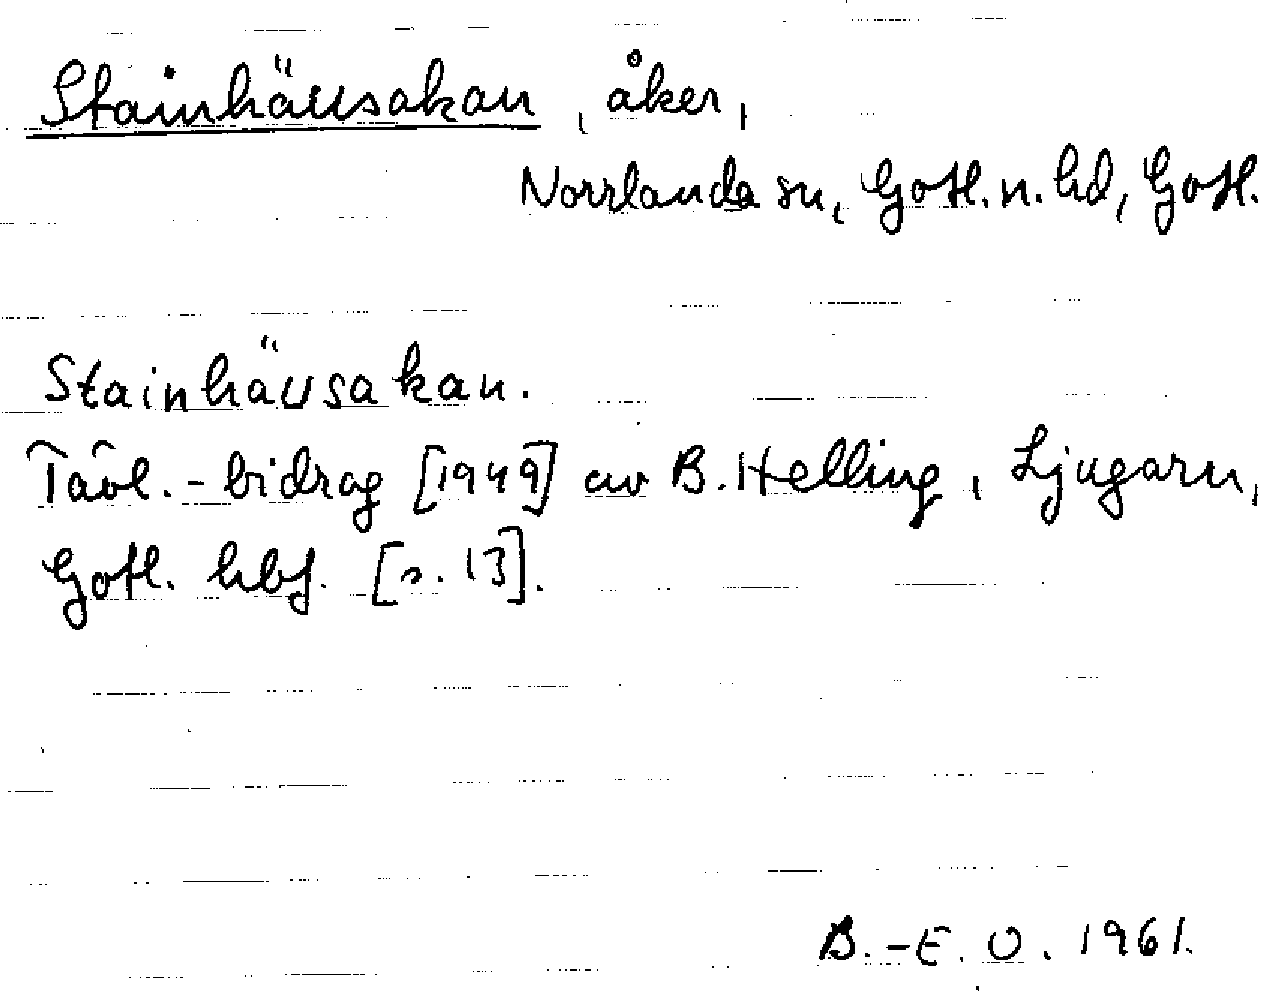 Stainhäusakan, åker,
Norrlanda sn, Gotl. n. hd, Gotl.
Stainhäusakan.
Tävl.-bidrag [1949] av B. Helling, Ljugarn,
Gotl. hbf. [s. 13].
B.-E. O. 1961.